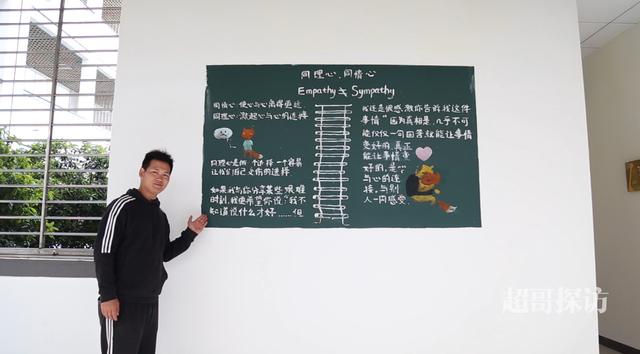 同理心、同情心
Empathy ≠ Sympathy
同情心：使心与心离得更远
同理心：激起心与心的连接
同理心是脆弱的选择
让我们自己受伤的选择
如果我与你分享某些艰难
时刻，我更希望你说“我不
知道说什么才好……但
我还是很感激你告诉我这件
事情”因为真相是，几乎不可
能仅仅一句回答，就能让事情
更好的，真正
能让事情变
好的，是心
与心的连
接，与别
人一同感受.
超哥探访